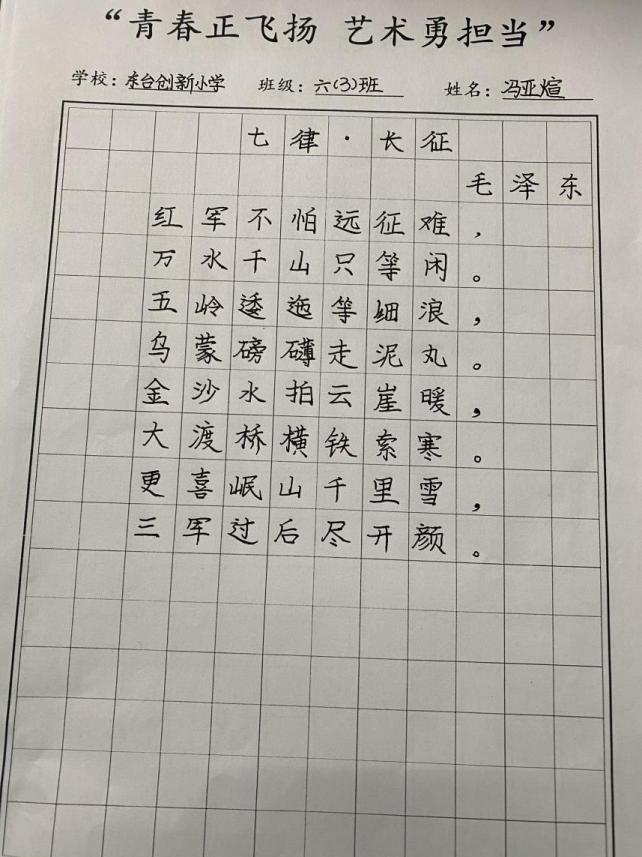 “青春正飞扬 艺术勇担当”
学校：东台创新小学 班级：六(3)班 姓名：冯亚煊
七律·长征
毛泽东
红军不怕远征难，
万水千山只等闲。
五岭逶迤等细浪，
乌蒙磅礴走泥丸。
金沙水拍云崖暖，
大渡桥横铁索寒。
更喜岷山千里雪，
三军过后尽开颜。